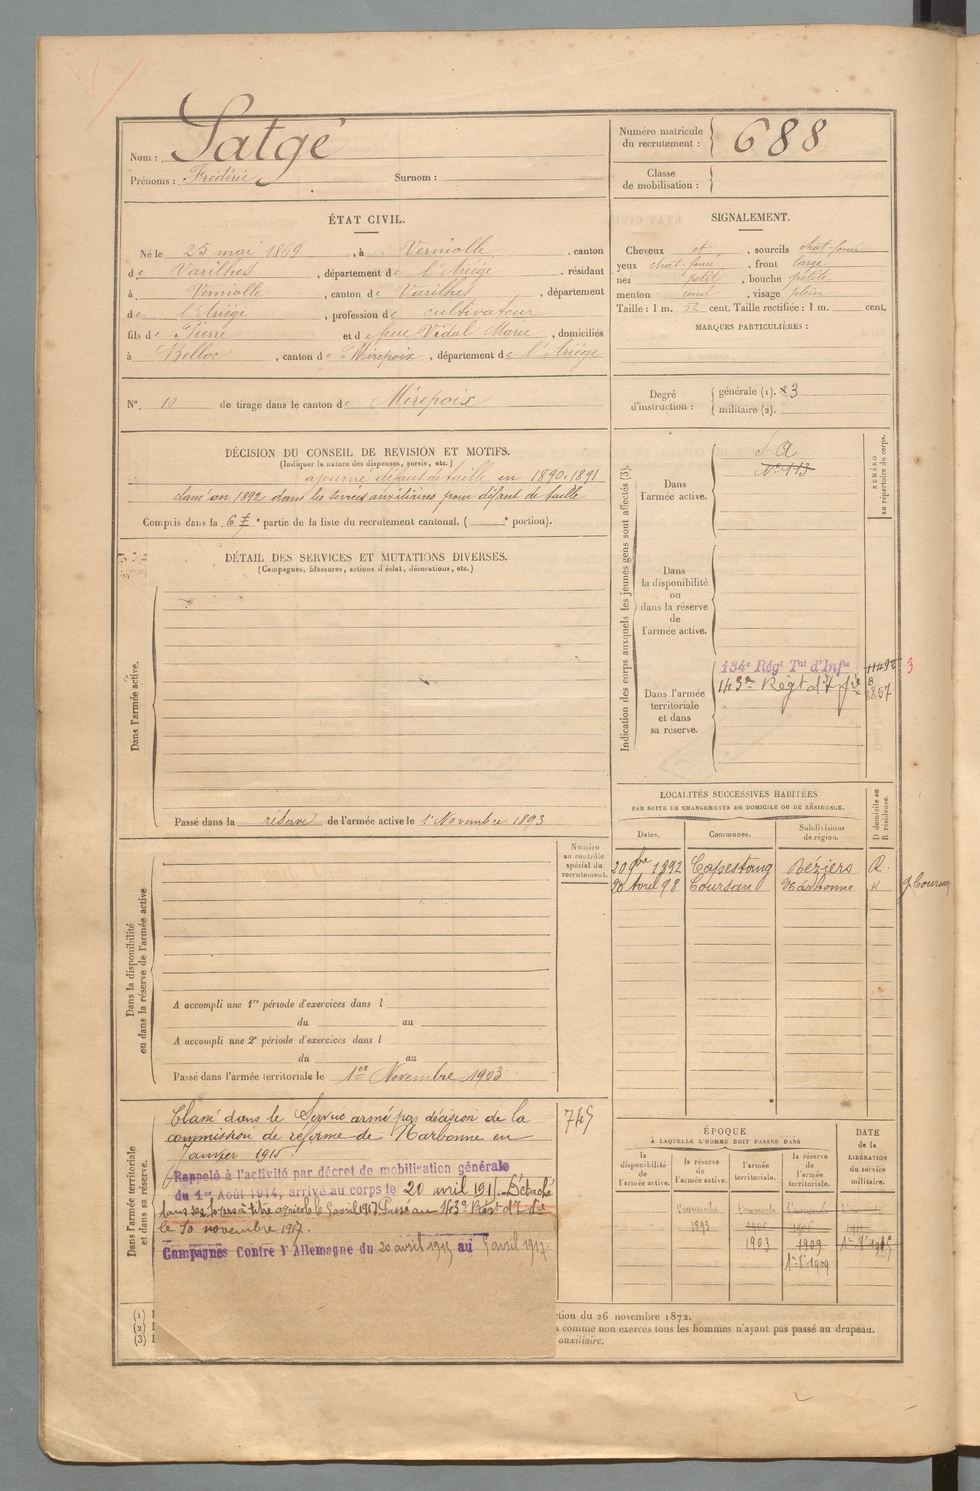 Nom : Satgé
Prénoms : Frédéric Surnom :
Numéro matricule du recrutement : 688
Classe de mobilisation :
ÉTAT CIVIL.
Né le 25 mai 1869, à Verniolle, canton
de Varilhes, département de l'Ariège, résidant
à Verniolle, canton de Varilhes, département
de l'Ariège, profession de cultivateur
fils de Pierre et de feue Vidal Marie, domiciliés
à Belloc, canton de Mirepoix, département de l'Ariège
N° 10 de tirage dans le canton de Mirepoix
SIGNALEMENT.
Cheveux et, sourcils chat-foncé
yeux chat-foncé, front large
nez petit, bouche petite
menton rond, visage plein
Taille : 1 m. 52 cent. Taille rectifiée : 1 m. cent.
MARQUES PARTICULIÈRES :
Degré d'instruction : générale (1). 3
militaire (2).
DÉCISION DU CONSEIL DE REVISION ET MOTIFS.
(Indiquer la nature des dispenses, sursis, etc.)
ajourné défaut de taille en 1890, 1891
classé en 1892 dans les services auxiliaires pour défaut de taille
Compris dans la 6e partie de la liste du recrutement cantonal. ( e portion).
DÉTAIL DES SERVICES ET MUTATIONS DIVERSES.
(Campagnes, blessures, actions d'éclat, décorations, etc.)
Dans l'armée active.
Passé dans la réserve de l'armée active le 1er Novembre 1893
Indication des corps auxquels les jeunes gens sont affectés (3).
NUMÉRO au répertoire du corps.
Dans l'armée active.
S. A
N° 113
Dans la disponibilité ou dans la réserve de l'armée active.
Dans l'armée territoriale et dans sa réserve.
134e Régt Tal d'Infie
143e Régt d'Infie
3
LOCALITÉS SUCCESSIVES HABITÉES
PAR SUITE DE CHANGEMENTS DE DOMICILE OU DE RÉSIDENCE.
D domicile ou R résidence.
Dates. Communes. Subdivisions de région.
20 9bre 1892 Capestang Béziers R
20 Avril 98 Coursan Narbonne R
Dans la disponibilité ou dans la réserve de l'armée active
Numéro au contrôle spécial du recrutement.
A accompli une 1re période d'exercices dans l
du au
A accompli une 2e période d'exercices dans l
du au
Passé dans l'armée territoriale le 1er Novembre 1903
Dans l'armée territoriale et dans sa réserve.
Classé dans le Service armé par décision de la
commission de réforme de Narbonne en
Janvier 1915.
Rappelé à l'activité par décret de mobilisation générale
du 1er Août 1914, arrivé au corps le 20 avril 1915. Détaché
dans ses foyers à titre agricole le 5 avril 1917. Passé au 143e Régt d'Infie
le 10 novembre 1917.
Campagnes Contre l'Allemagne du 20 avril 1915 au 5 avril 1917.
745
ÉPOQUE
À LAQUELLE L'HOMME DOIT PASSER DANS
la disponibilité de l'armée active. la réserve de l'armée active. l'armée territoriale. la réserve de l'armée territoriale.
DATE de la LIBÉRATION du service militaire.
1893
1903
1909
1er 8e 1909
(1) I
(2) I
(3) I
ction du 26 novembre 1872.
comme non exercés tous les hommes n'ayant pas passé au drapeau.
auxiliaire.